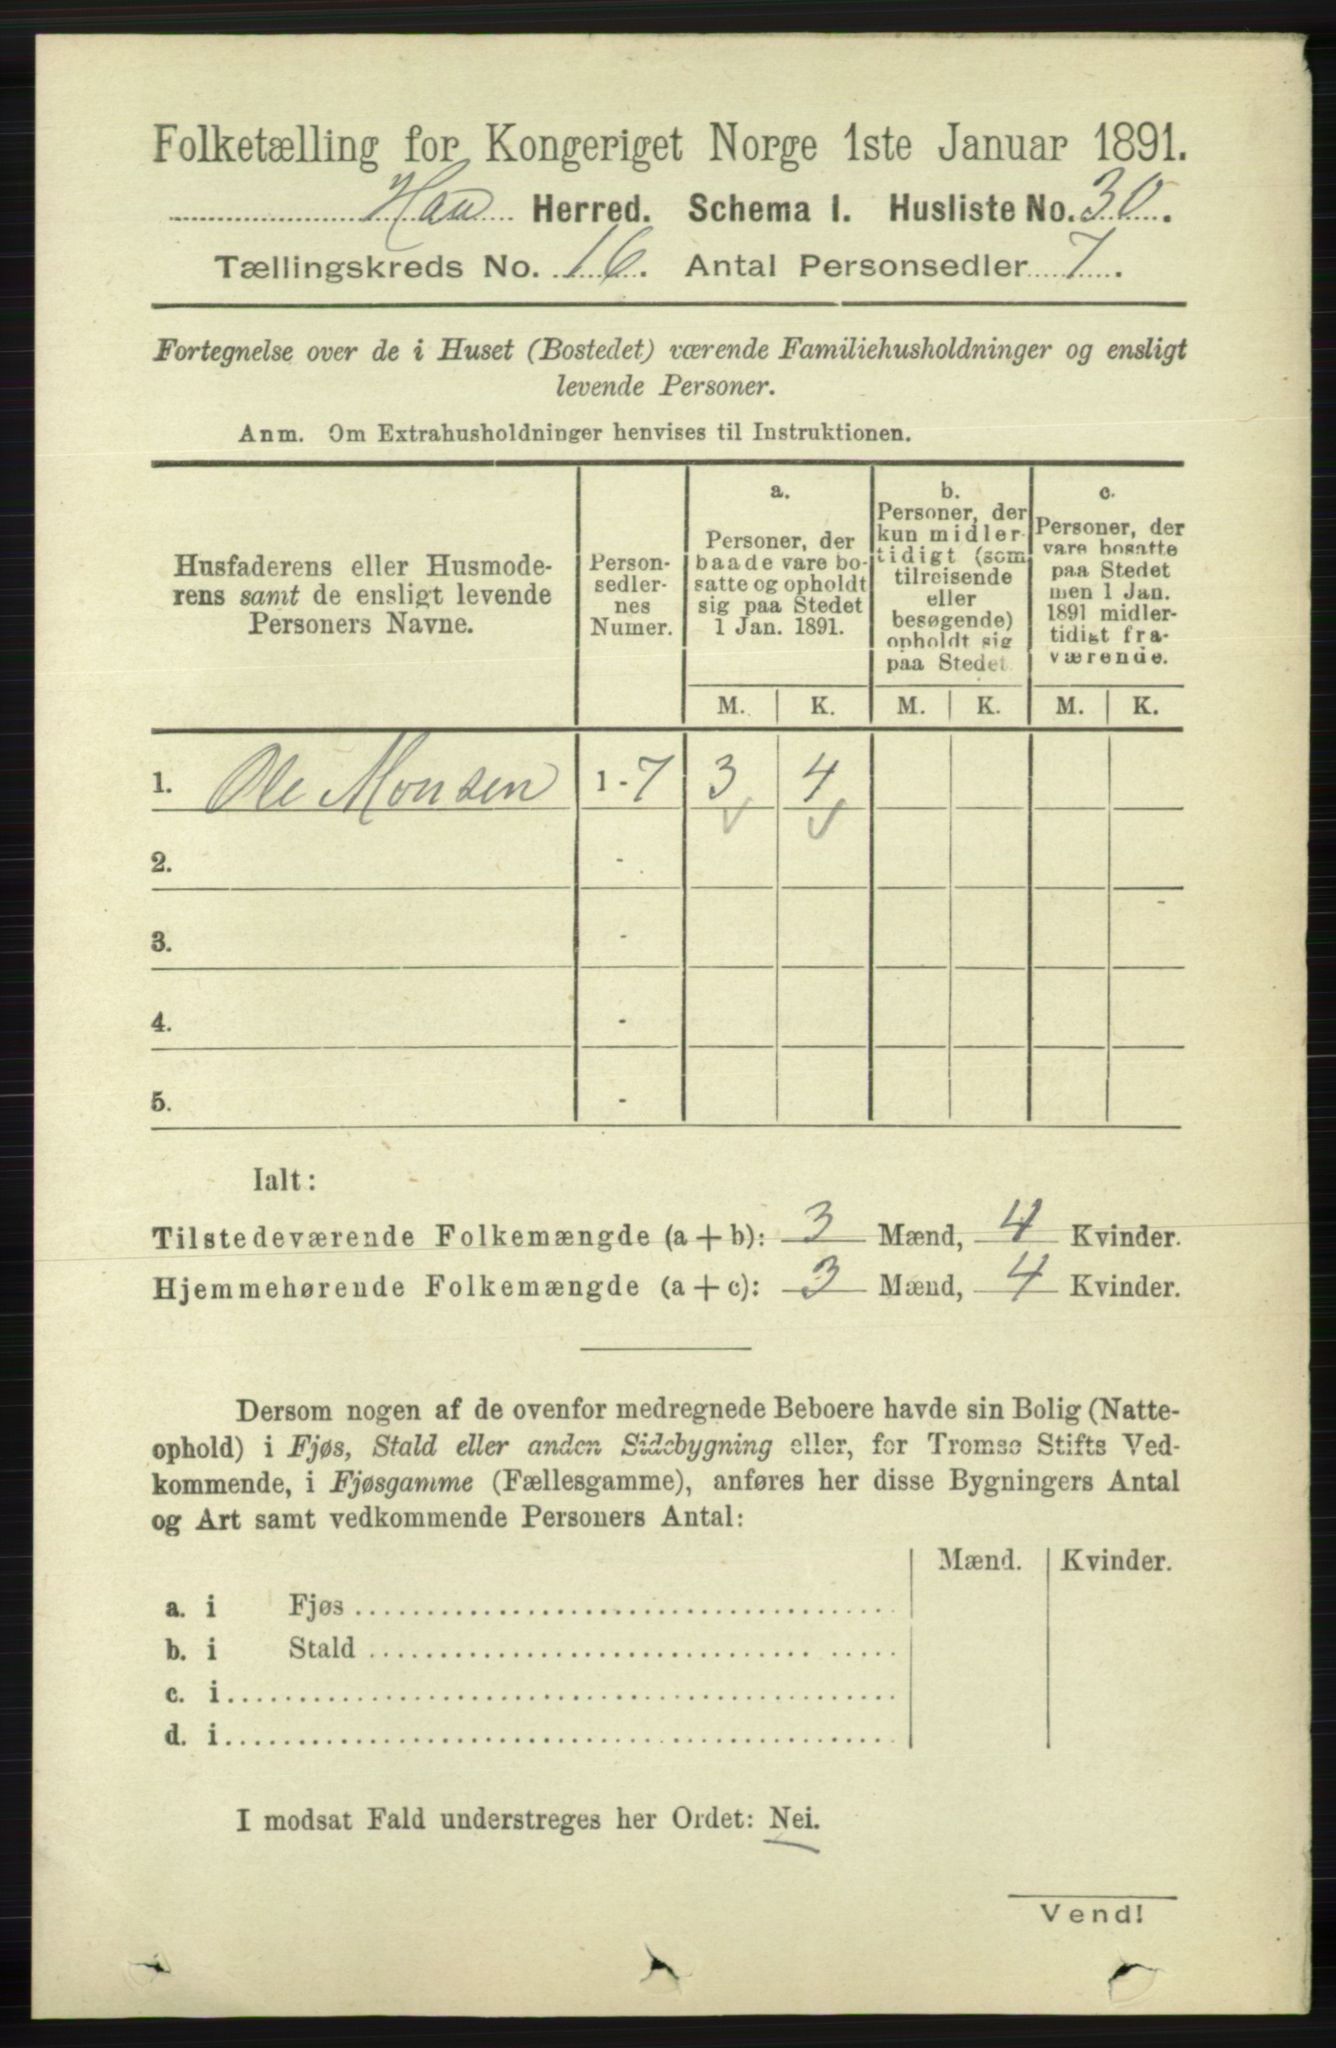 Folketælling for Kongeriget Norge 1ste Januar 1891.
Hau Herred. Schema I. Husliste No. 30.
Tællingskreds No. 16. Antal Personsedler 7.
Fortegnelse over de i Huset (Bostedet) værende Familiehusholdninger og ensligt
levende Personer.
Anm. Om Extrahusholdninger henvises til Instruktionen.
Husfaderens eller Husmode-
rens samt de ensligt levende
Personers Navne.
Person-
sedler-
nes
Numer.
a.
Personer, der
baade vare bo-
satte og opholdt
sig paa Stedet
1 Jan. 1891.
b.
Personer, der
kun midler-
tidigt (som
tilreisende
eller
besøgende)
opholdt sig
paa Stedet.
c.
Personer, der
vare bosatte
paa Stedet
men 1 Jan.
1891 midler-
tidigt fra-
værende.
M. K. M. K. M. K.
1. Ole Monsen 1-7 3 4
2. -
3. -
4. -
5. -
Ialt:
Tilstedeværende Folkemængde (a+b): 3 Mænd, 4 Kvinder.
Hjemmehørende Folkemængde (a+c): 3 Mænd, 4 Kvinder.
Dersom nogen af de ovenfor medregnede Beboere havde sin Bolig (Natte-
ophold) i Fjøs, Stald eller anden Sidebygning eller, for Tromsø Stifts Ved-
kommende, i Fjøsgamme (Fællesgamme), anføres her disse Bygningers Antal
og Art samt vedkommende Personers Antal:
Mænd. Kvinder.
a. i Fjøs
b. i Stald
c. i
d. i
I modsat Fald understreges her Ordet: Nei.
Vend!